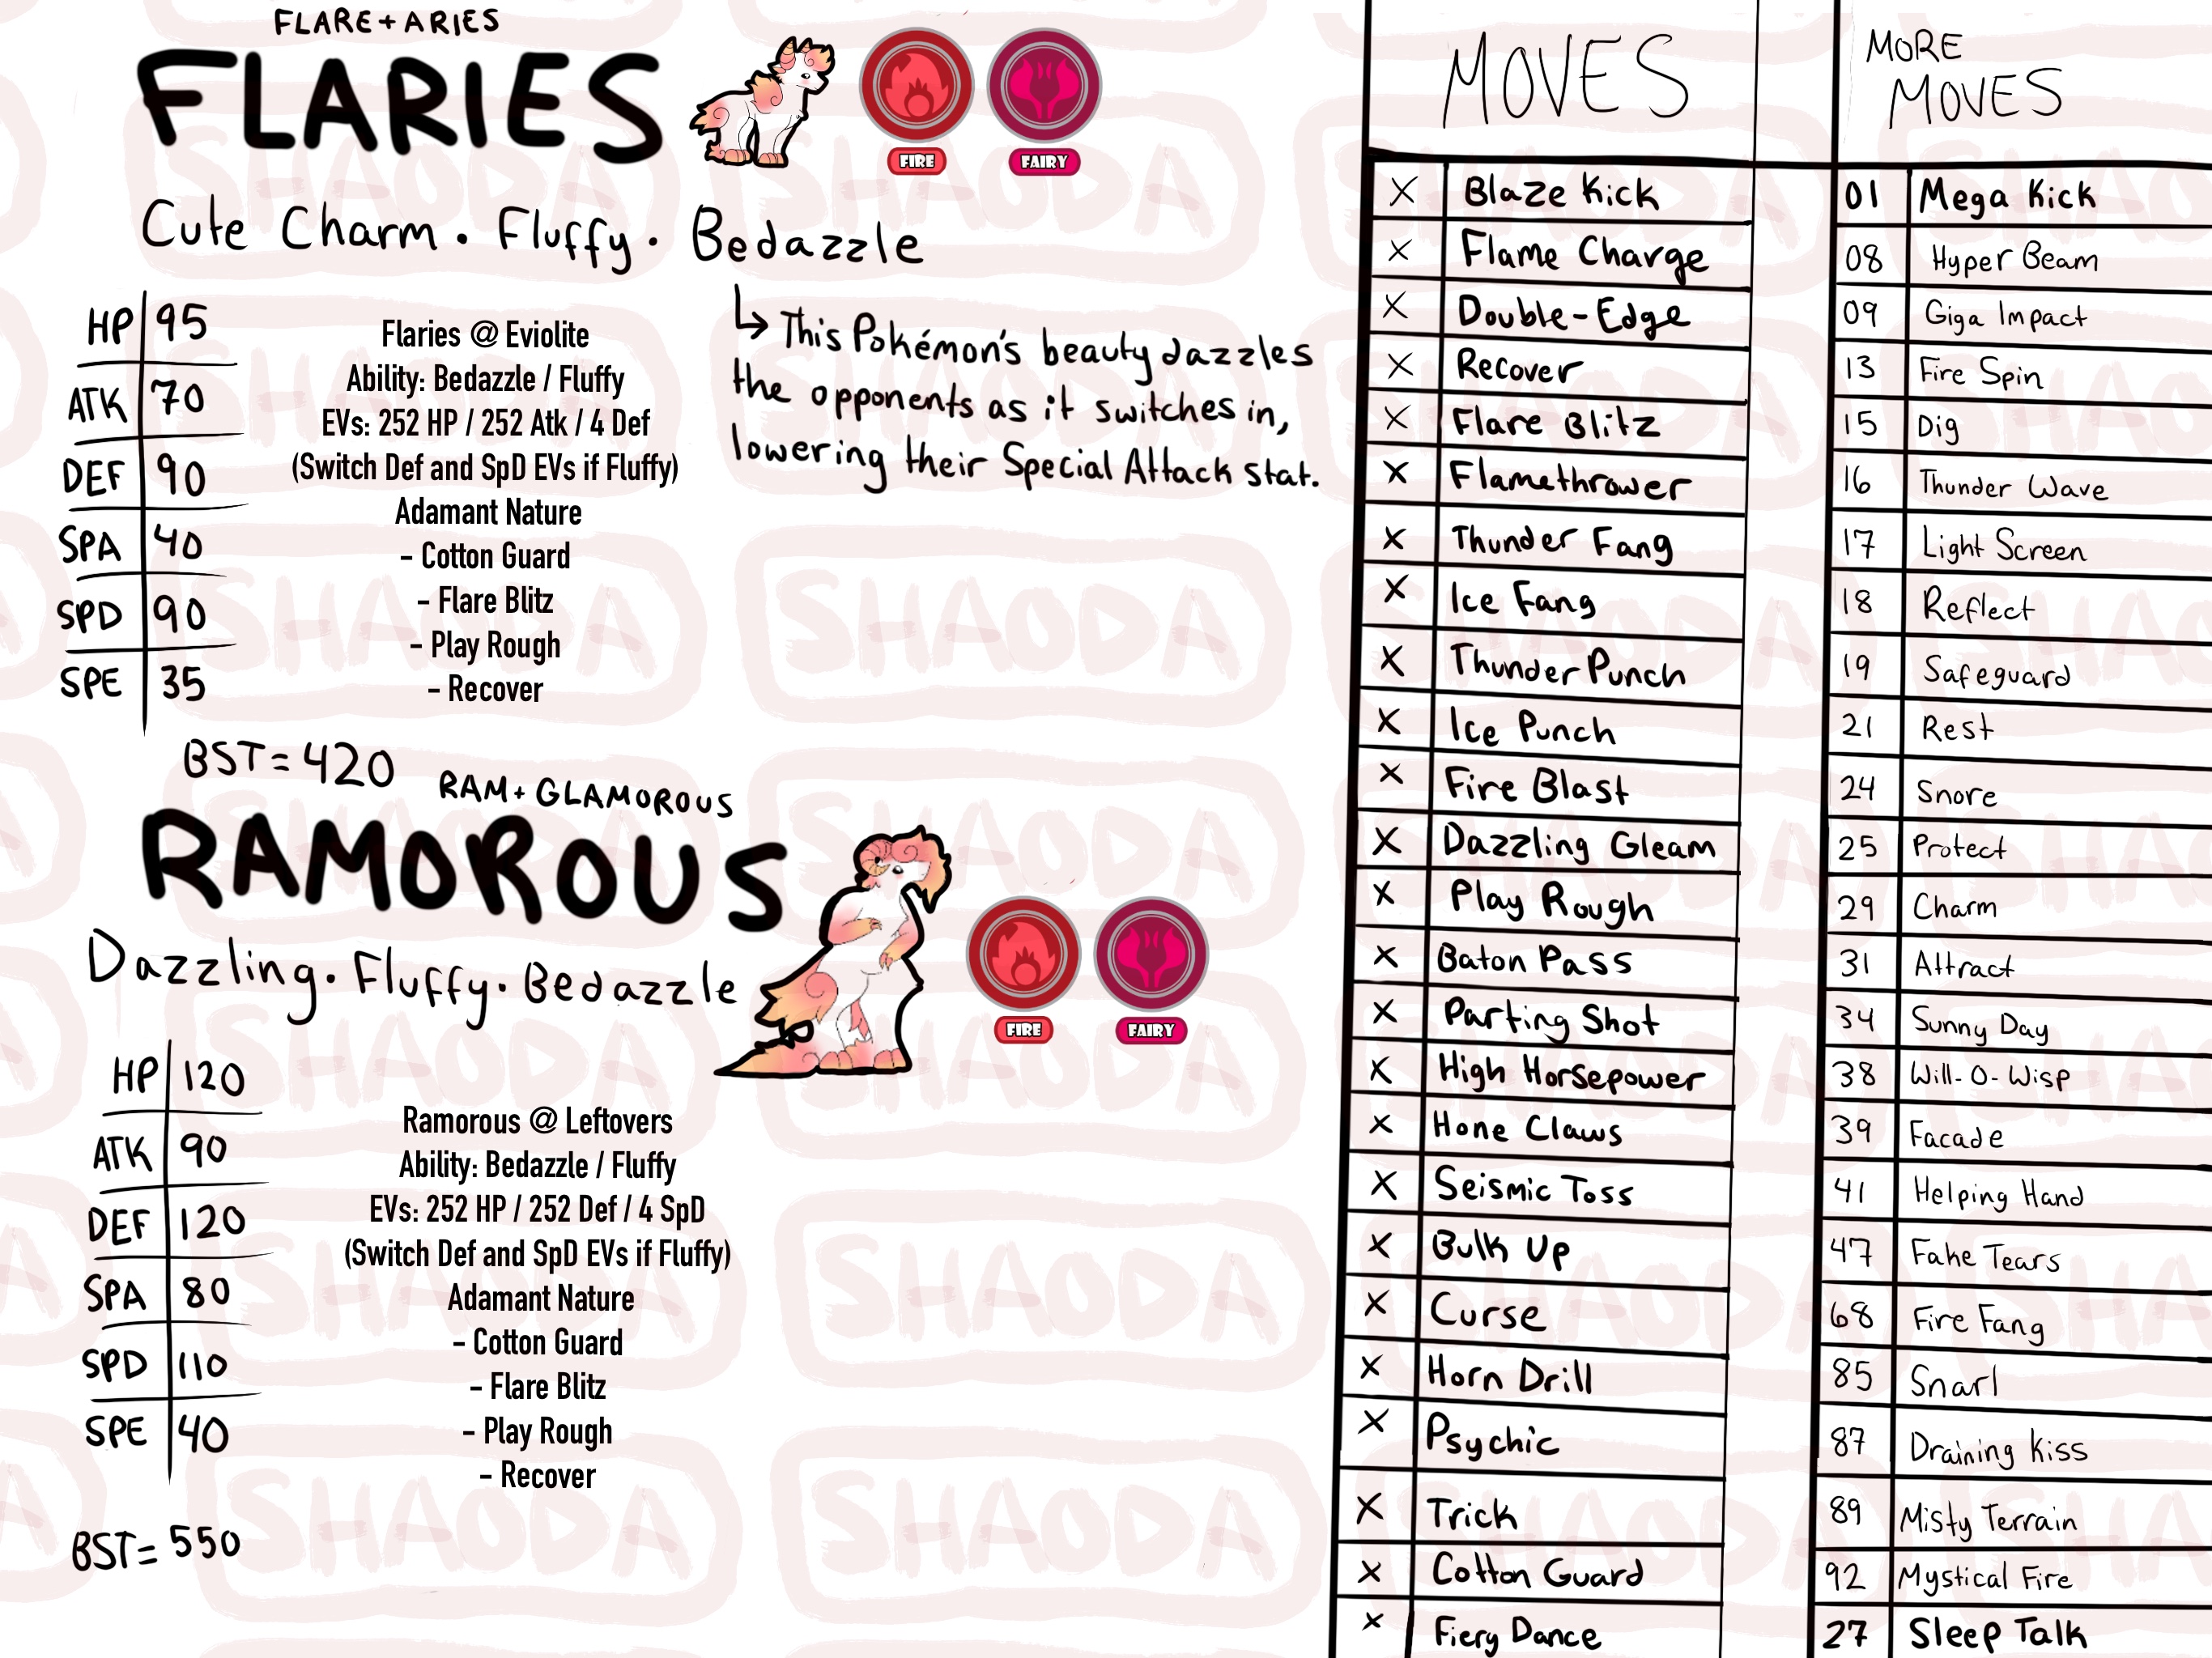 FLARE + ARIES
FLARIES
FIRE
FAIRY
Cute Charm · Fluffy · Bedazzle
This Pokémon's beauty dazzles
the opponents as it switches in,
lowering their Special Attack stat.
HP 95
ATK 70
DEF 90
SPA 40
SPD 90
SPE 35
BST = 420
Flaries @ Eviolite
Ability: Bedazzle / Fluffy
EVs: 252 HP / 252 Atk / 4 Def
(Switch Def and SpD EVs if Fluffy)
Adamant Nature
- Cotton Guard
- Flare Blitz
- Play Rough
- Recover
RAM + GLAMOROUS
RAMOROUS
FIRE
FAIRY
Dazzling · Fluffy · Bedazzle
HP 120
ATK 90
DEF 120
SPA 80
SPD 110
SPE 40
BST = 550
Ramorous @ Leftovers
Ability: Bedazzle / Fluffy
EVs: 252 HP / 252 Def / 4 SpD
(Switch Def and SpD EVs if Fluffy)
Adamant Nature
- Cotton Guard
- Flare Blitz
- Play Rough
- Recover
MOVES
X Blaze Kick
X Flame Charge
X Double-Edge
X Recover
X Flare Blitz
X Flamethrower
X Thunder Fang
X Ice Fang
X Thunder Punch
X Ice Punch
X Fire Blast
X Dazzling Gleam
X Play Rough
X Baton Pass
X Parting Shot
X High Horsepower
X Hone Claws
X Seismic Toss
X Bulk Up
X Curse
X Horn Drill
X Psychic
X Trick
X Cotton Guard
X Fiery Dance
MORE
MOVES
01 Mega Kick
08 Hyper Beam
09 Giga Impact
13 Fire Spin
15 Dig
16 Thunder Wave
17 Light Screen
18 Reflect
19 Safeguard
21 Rest
24 Snore
25 Protect
29 Charm
31 Attract
34 Sunny Day
38 Will-O-Wisp
39 Facade
41 Helping Hand
47 Fake Tears
68 Fire Fang
85 Snarl
87 Draining Kiss
89 Misty Terrain
92 Mystical Fire
27 Sleep Talk
SHAODA